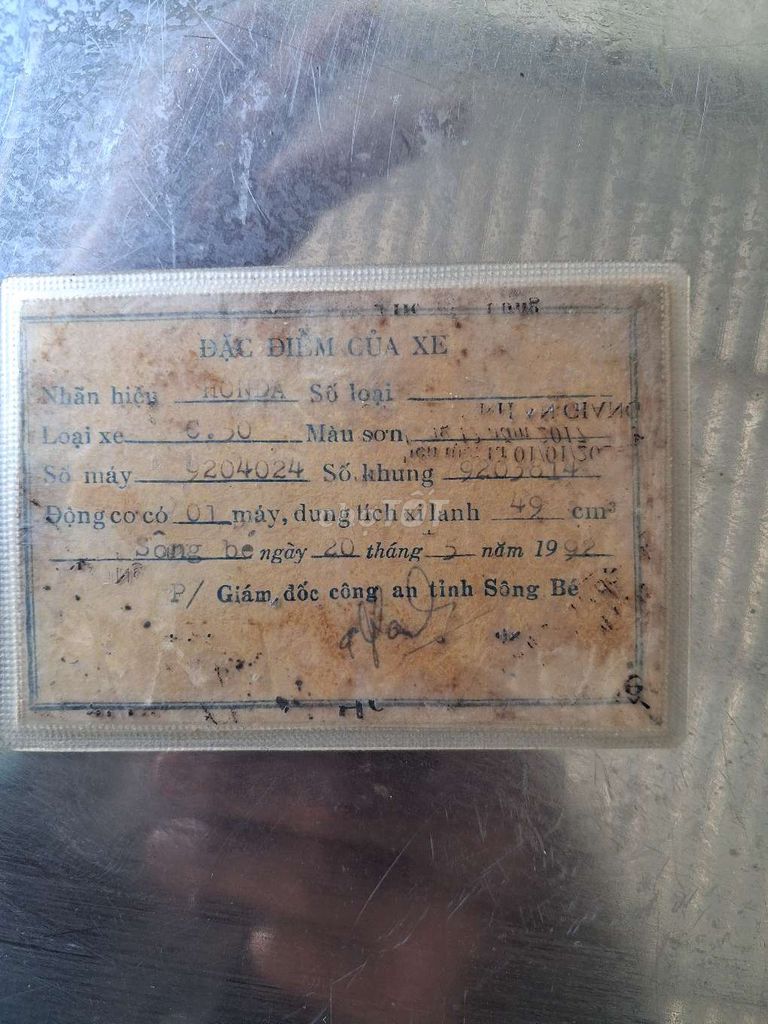 ĐẶC ĐIỂM CỦA XE
Nhãn hiệu HONDA Số loại
Loại xe C.50 Màu sơn
Số máy 9204024 Số khung 9203814
Động cơ có 01 máy, dung tích xi lanh 49 cm³
Sông bé ngày 20 tháng 5 năm 1992
P/ Giám đốc công an tỉnh Sông Bé